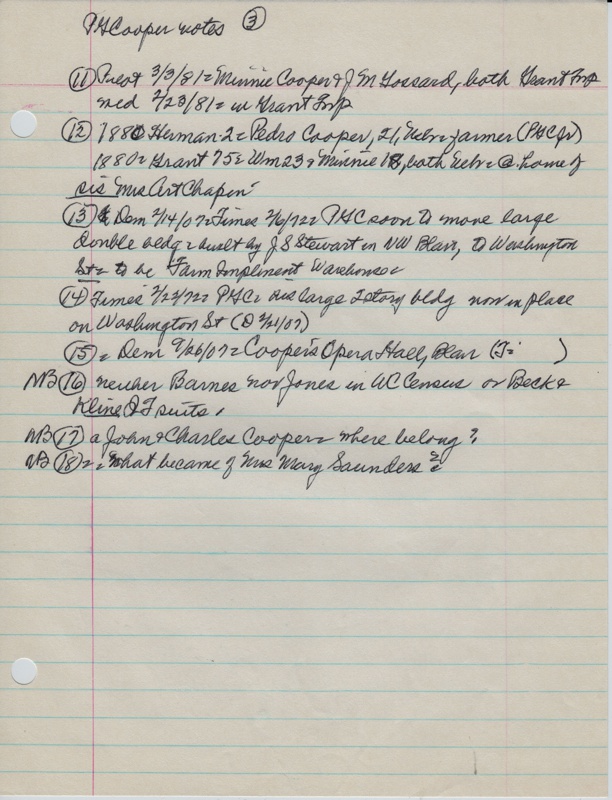 PHCooper notes ③
⑪ Pilot 3/3/81 = Minnie Cooper & J M Gossard, both Grant Twp
wed 2/23/81 = in Grant Twp
⑫ 1880 Herman-2 = Pedro Cooper, 21, Nebr = farmer (PHC Jr)
1880 = Grant 75 = Wm 23 = Minnie 18, both Nebr = @ home of
sis Mrs Art Chapin
⑬ Dem 2/14/07 = Times 2/6/72 = PHC soon to move large
double bldg = built by J S Stewart in NW Blair, to Washington
St = to be Farm Implement Warehouse
⑭ Times 2/22/72 = PHC = his large 2 story bldg now in place
on Washington St (D 2/21/07)
⑮ = Dem 9/26/07 = Cooper's Opera Hall, Blair (T: )
NB ⑯ neither Barnes nor Jones in Census or Beck &
Kline suits.
NB ⑰ a John & Charles Cooper = where belong?
NB ⑱ = what became of Mrs Mary Saunders?